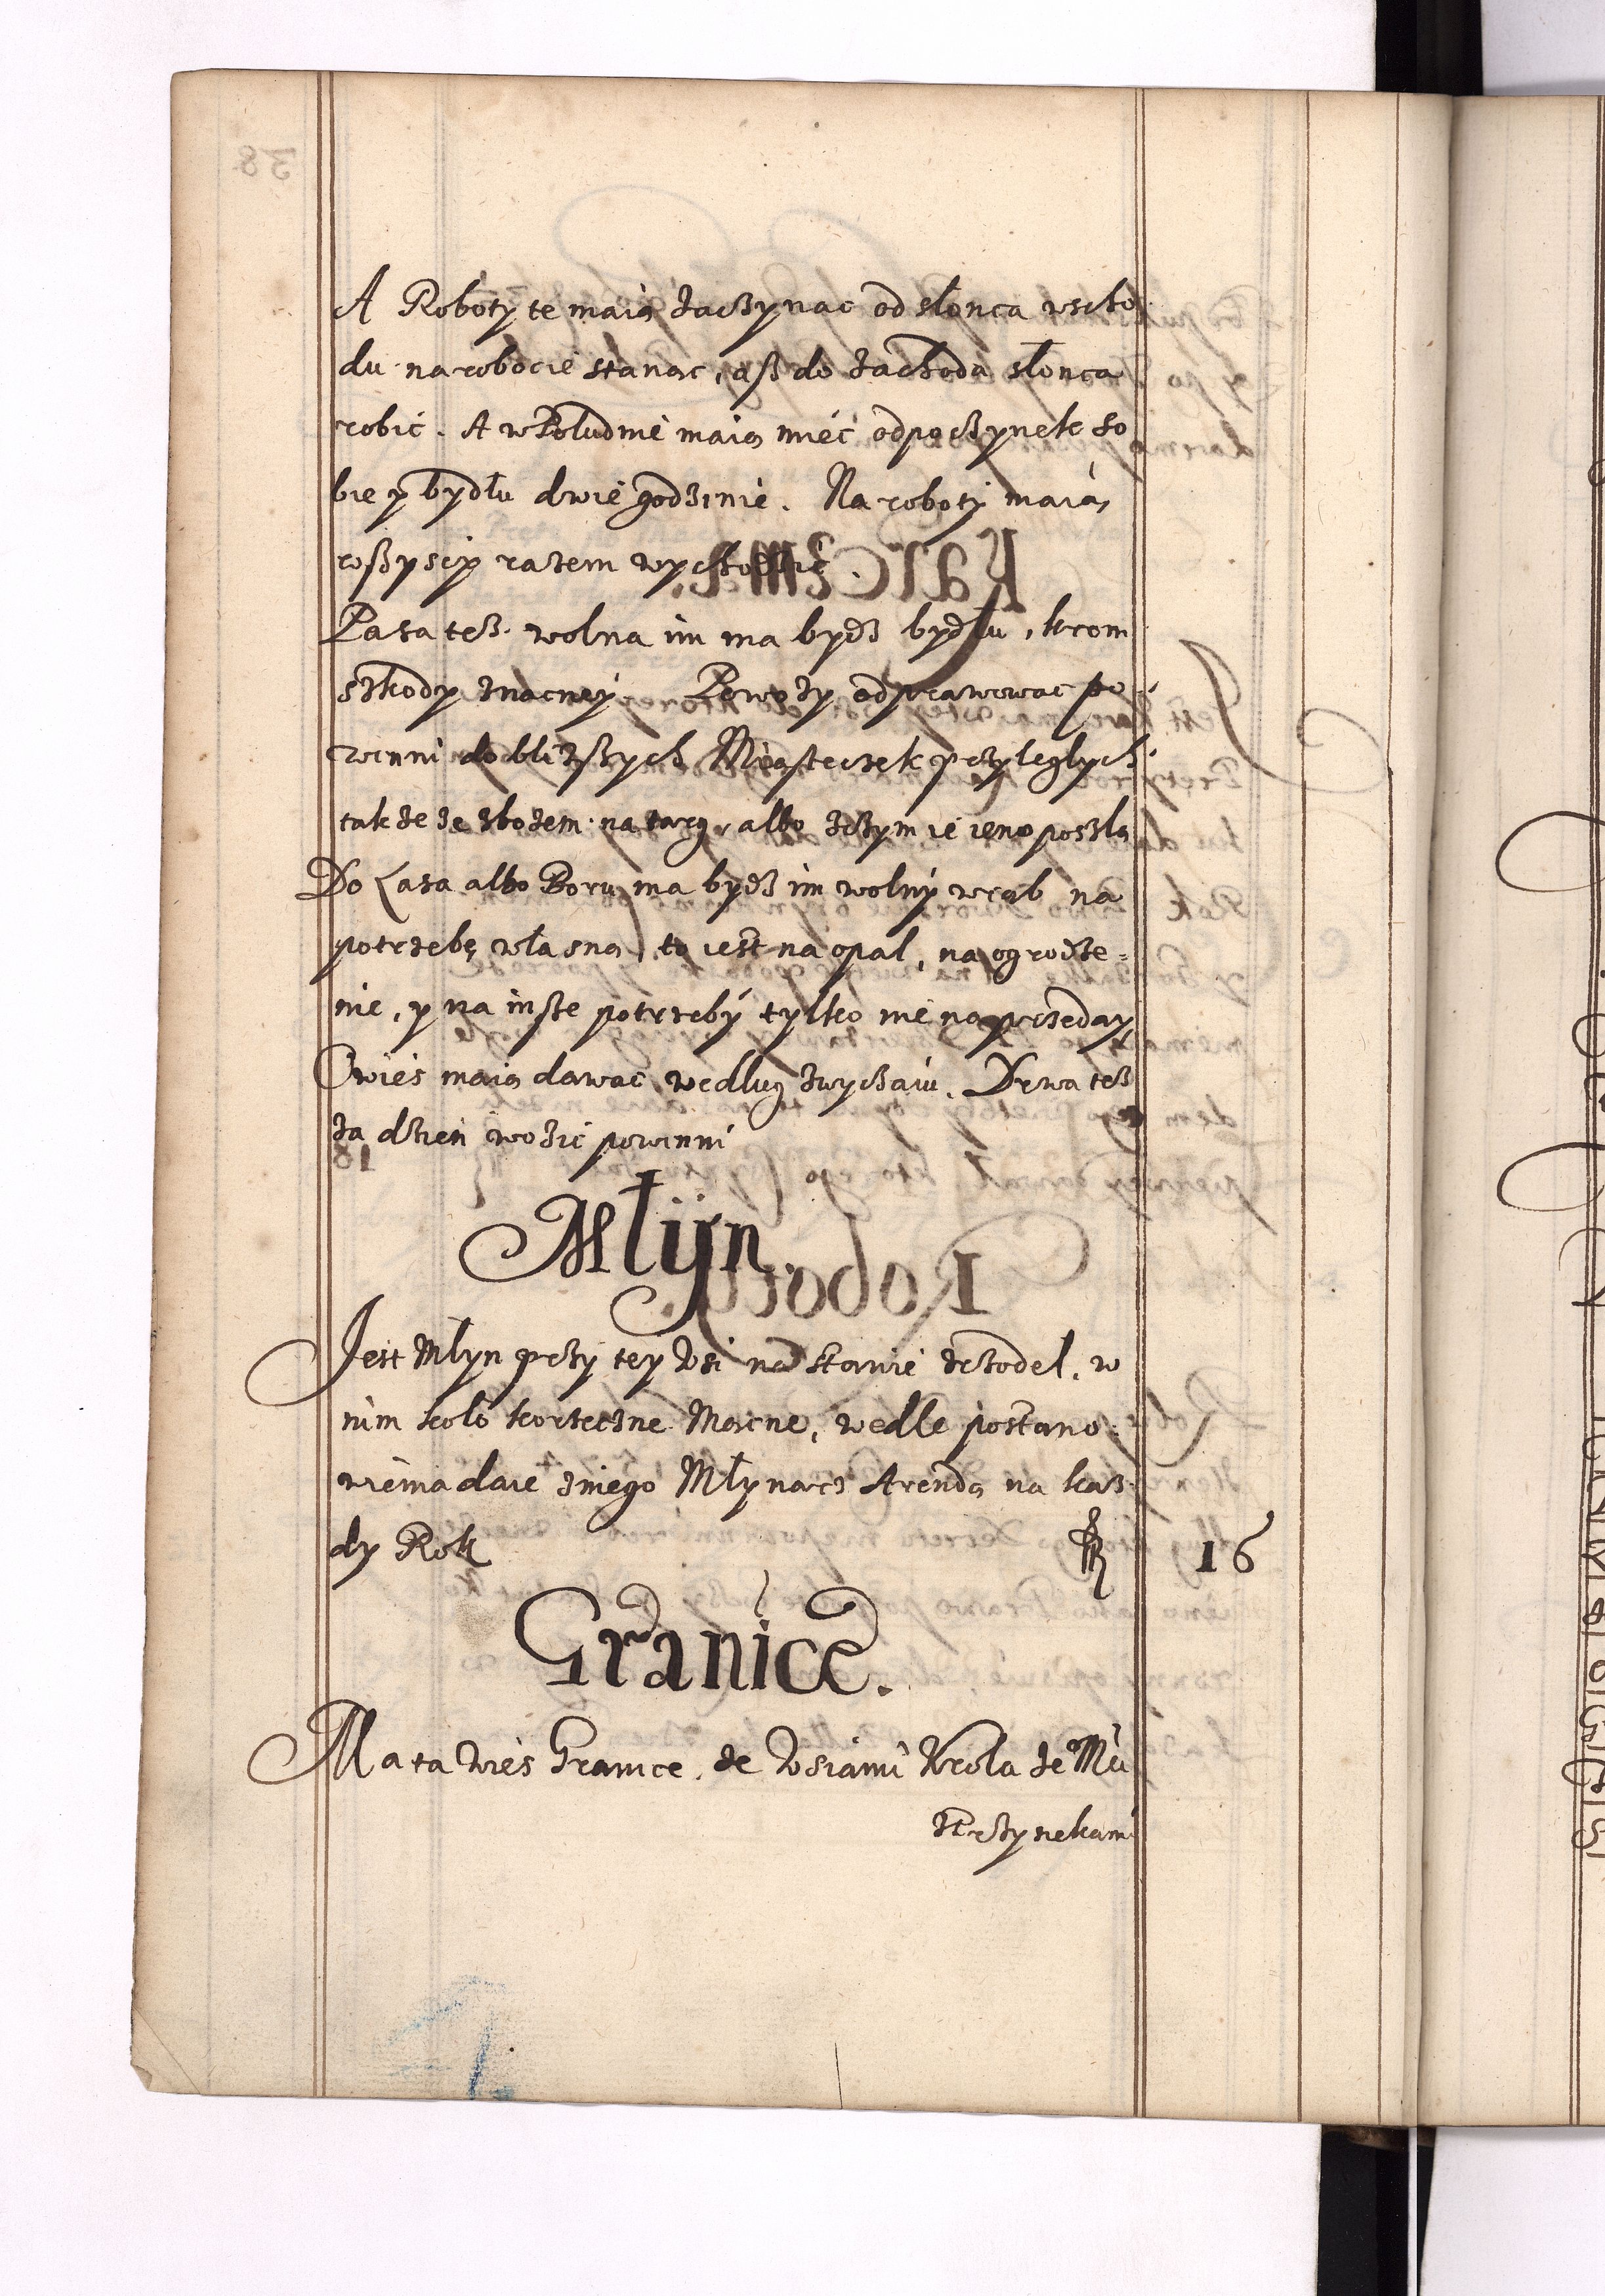 A Roboty te maią zaczynac od słonca wscho
du na robocie stanąc, asz do zachoda słonca
robic. A w Poludnie maią miéć odpoczynek so
bie y bydłu dwie godzinie. Na roboty maią
wszyscy razem wychodzic.
Pasza tesz wolna im ma bydz bydłu, krom
szkody znaczney. Powozy odprawowac po
winni do blizszych Miasteczek przyległych
takze ze zbozem na targ, albo z czym ie ieno poszlą
Do Lasa albo Boru ma bydz im wolny wrąb na
potrzebę własną, to iest na opał, na ogrodze=
nie, y na insze potrzeby tylko nie na przeday
Owies maią dawac według zwyczaiu. Drwa tesz
za dzien wozic powinni
Młyn.
Jest Młyn przy tey Wsi na Stawie, w
nim koło korzeczne Mącne, wedle postano
wienia daie z niego Młynarz Arendą na kasz
dy Rok 16
Granice.
Ma ta Wies Granice ze Wsiami Krola Je Mci